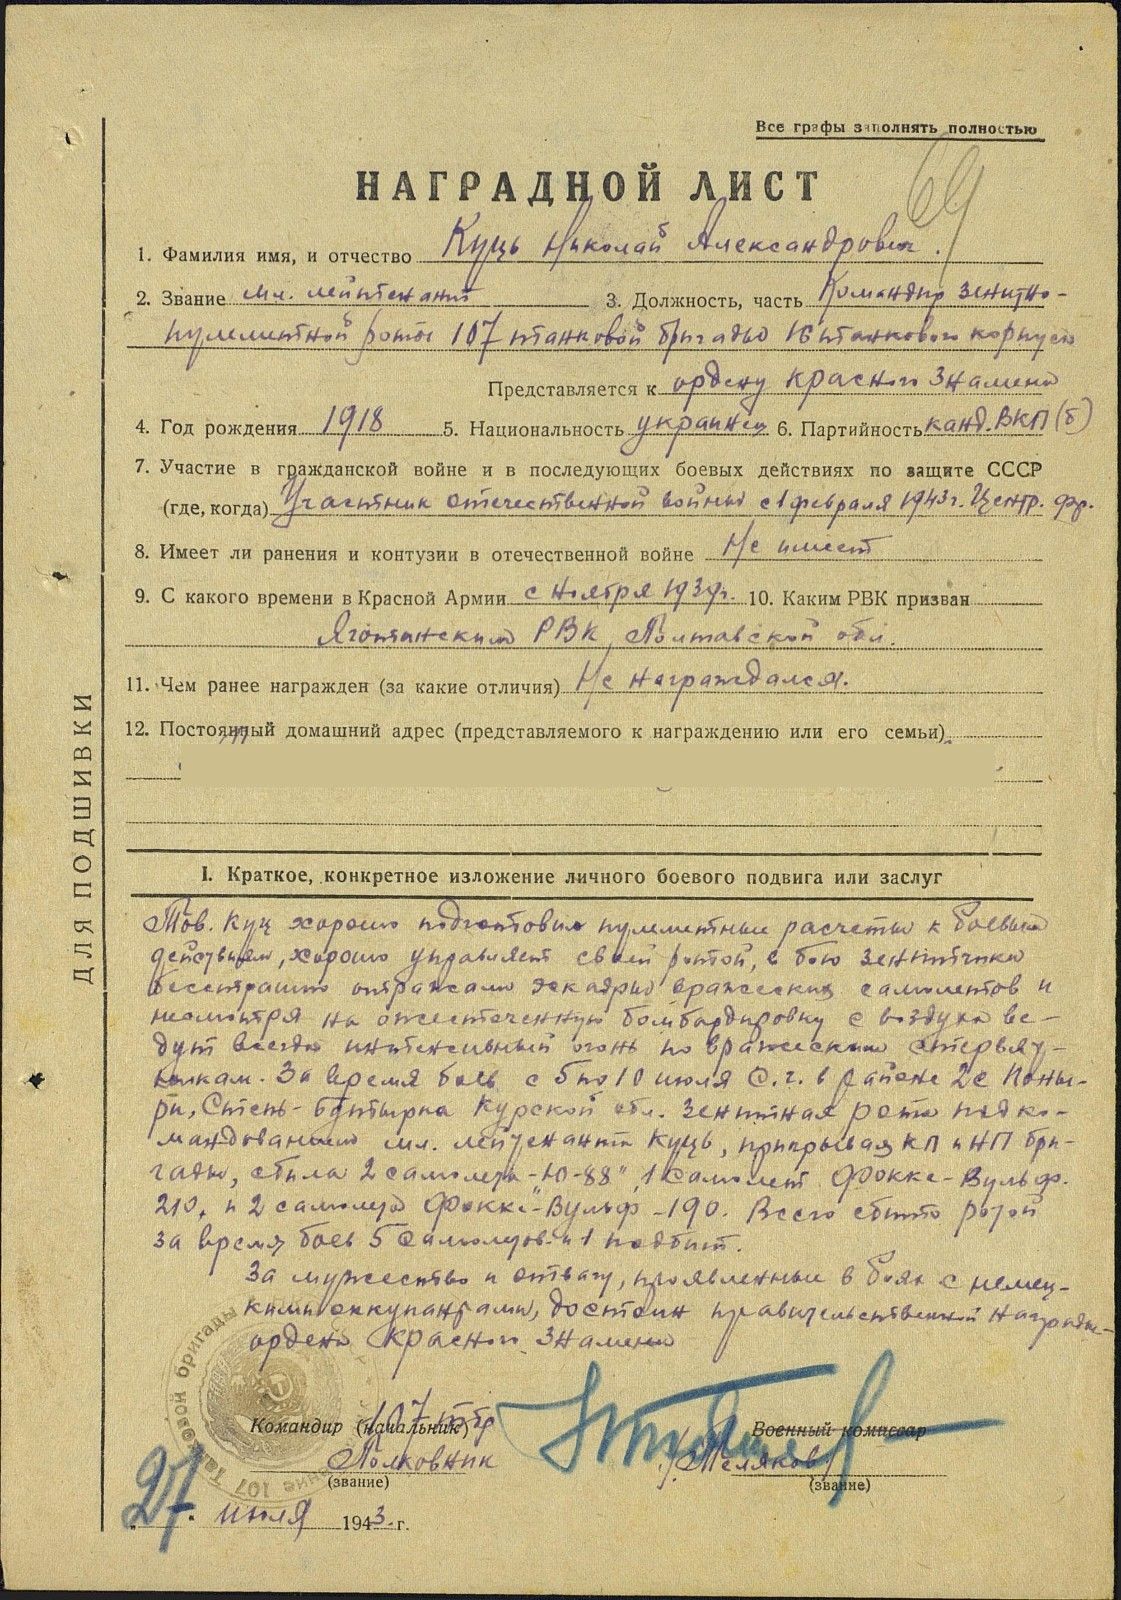 Все графы заполнять полностью
69
НАГРАДНОЙ ЛИСТ
1. Фамилия имя, и отчество Куць Николай Александрович.
2. Звание мл. лейтенант 3. Должность, часть Командир зенитно-
пулеметной роты 107 танковой бригады 16 танкового корпуса
Представляется к ордену Красного Знамени
4. Год рождения 1918 5. Национальность украинец 6. Партийность канд. ВКП(б)
7. Участие в гражданской войне и в последующих боевых действиях по защите СССР
(где, когда) Участник отечественной войны с 1 февраля 1943 г. Центр. фр.
8. Имеет ли ранения и контузии в отечественной войне Не имеет
9. С какого времени в Красной Армии с ноября 1939г. 10. Каким РВК призван
РВК, Полтавской обл.
11. Чем ранее награжден (за какие отличия) Не награждался.
12. Постоянный домашний адрес (представляемого к награждению или его семьи)
ДЛЯ ПОДШИВКИ
I. Краткое, конкретное изложение личного боевого подвига или заслуг
Тов. Куц хорошо подготовил пулеметные расчеты к боевым
действиям, хорошо управляет своей ротой, в бою зенитчики
бесстрашно отражали эскадры вражеских самолетов и
несмотря на ожесточенную бомбардировку с воздуха ве-
дут всегда интенсивный огонь по вражеским стервят-
никам. За время боев с 6 по 10 июля с.г. в районе 2е Поны-
ри, Степь-Бутырки Курской обл. зенитная рота под ко-
мандованием мл. лейтенанта Куць, прикрывая КП и НП бри-
гады, сбила 2 самолета "Ю-88", 1 самолет Фокке-Вульф.
210, и 2 самолета Фокке-Вульф-190. Всего сбито ротой
за время боев 5 самолетов и 1 подбит.
За мужество и отвагу, проявленные в боях с немец-
кими оккупантами, достоин правительственной награды-
ордена Красного Знамени
Командир (начальник) 107 тбр Военный комиссар
Полковник Теляков
(звание) (звание)
27. июля 1943 г.
107 Танковой бригады